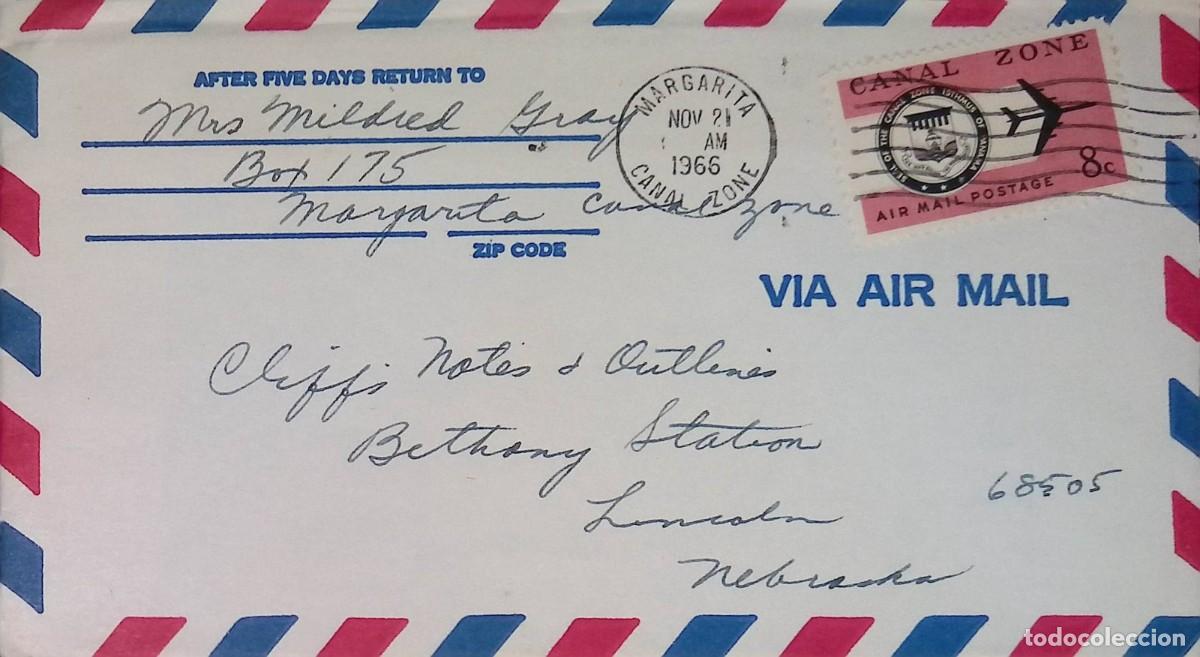 AFTER FIVE DAYS RETURN TO
Mrs Mildred Gray
Box 175
Margarita Canal Zone
ZIP CODE
MARGARITA
NOV 21
AM
1966
CANAL ZONE
CANAL ZONE
SEAL OF THE CANAL ZONE ISTHMUS OF PANAMA
8c
AIR MAIL POSTAGE
VIA AIR MAIL
Cliff's Notes & Outlines
Bethany Station
Lincoln
68505
Nebraska
todocoleccion